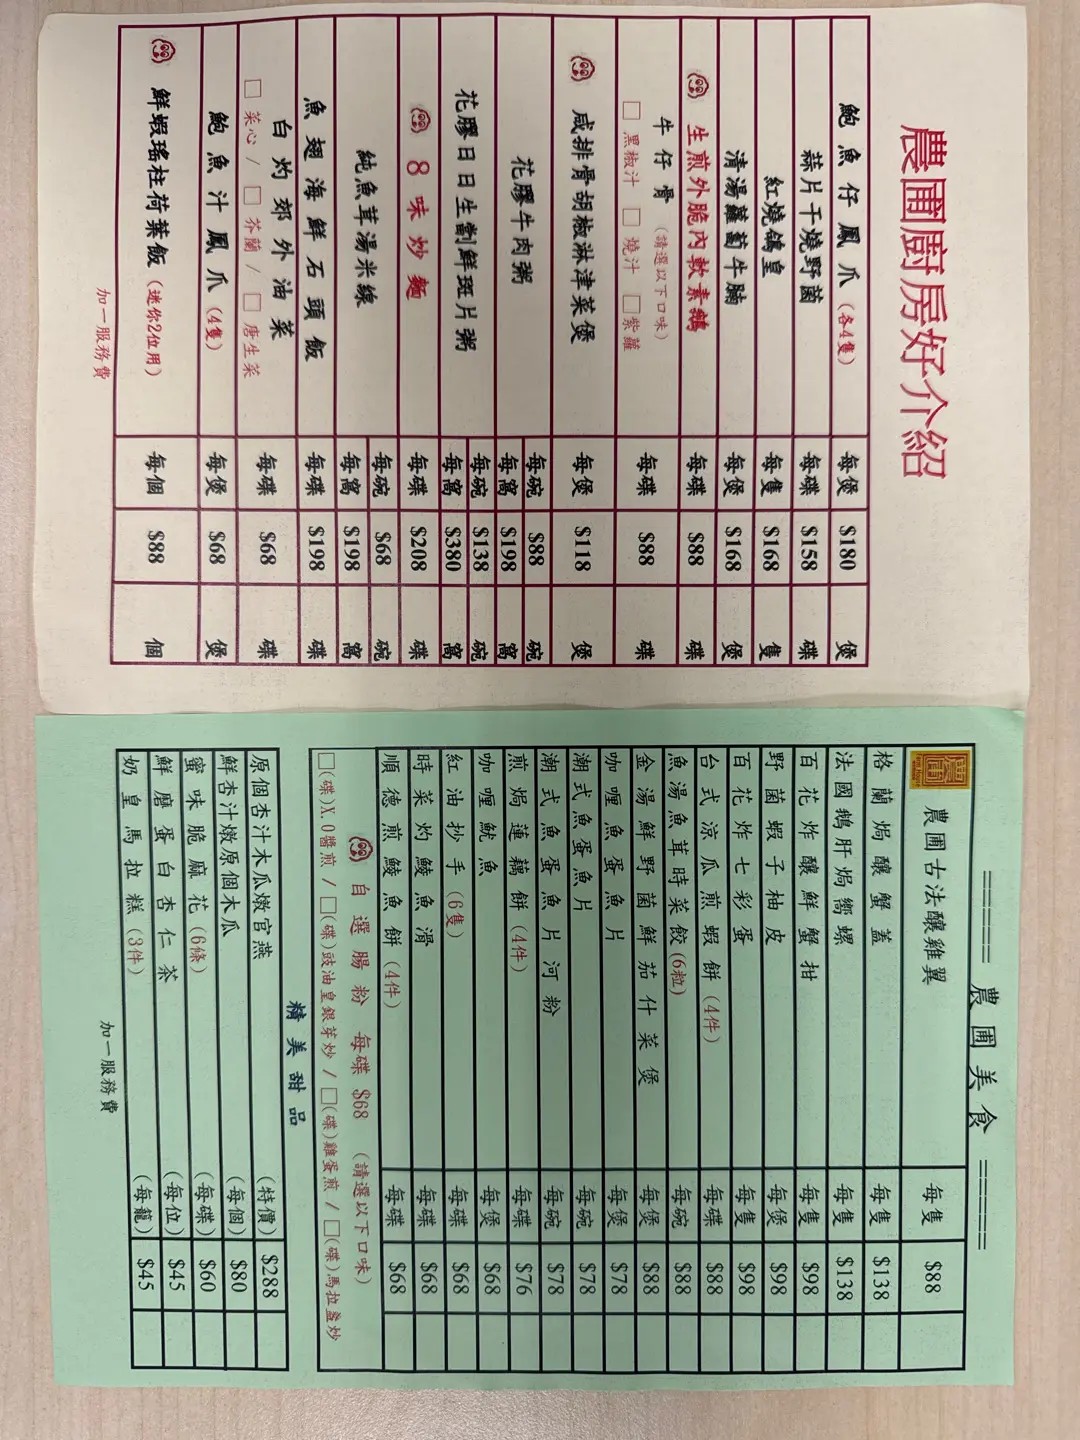 農圃廚房好介紹
鮑魚仔鳳爪(各4隻) 每煲 $180 煲
蒜片干燒野菌 每碟 $158 碟
紅燒鴿皇 每隻 $168 隻
清湯蘿蔔牛腩 每煲 $168 煲
生煎外脆內軟素鵝 每碟 $88 碟
牛仔骨(請選以下口味) 每碟 $88 碟
□ 黑椒汁 □ 燒汁 □ 紫蘿
咸排骨胡椒淋津菜煲 每煲 $118 煲
花膠牛肉粥 每碗 $88 碗
每窩 $198 窩
花膠日日生劏鮮斑片粥 每碗 $138 碗
每窩 $380 窩
8味炒麵 每碟 $208 碟
純魚茸湯米線 每碗 $68 碗
每窩 $198 窩
魚翅海鮮石頭飯 每碟 $198 碟
白灼郊外油菜 每碟 $68 碟
□ 菜心 / □ 芥蘭 / □ 唐生菜
鮑魚汁鳳爪(4隻) 每煲 $68 煲
鮮蝦瑤柱荷葉飯(迷你2位用) 每個 $88 個
加一服務費
===== 農圃美食 =====
農圃
Farm House
農圃古法釀雞翼 每隻 $88
格蘭焗釀蟹蓋 每隻 $138
法國鵝肝焗嚮螺 每隻 $138
百花炸釀鮮蟹拑 每隻 $98
野菌蝦子柚皮 每煲 $98
百花炸七彩蛋 每隻 $98
台式涼瓜煎蝦餅(4件) 每碟 $88
魚湯魚茸時菜餃(6粒) 每碗 $88
金湯鮮野菌鮮茄什菜煲 每煲 $88
咖喱魚蛋魚片 每煲 $78
潮式魚蛋魚片 每碗 $78
潮式魚蛋魚片河粉 每碗 $78
煎焗蓮藕餅(4件) 每碟 $76
咖喱魷魚 每煲 $68
紅油抄手(6隻) 每碟 $68
時菜灼鯪魚滑 每碟 $68
順德煎鯪魚餅(4件) 每碟 $68
自選腸粉 每碟 $68 (請選以下口味)
□(碟)X.O醬煎 / □(碟)豉油皇銀芽炒 / □(碟)雞蛋煎 / □(碟)馬拉盞炒
精美甜品
原個杏汁木瓜燉官燕 (特價) $288
鮮杏汁燉原個木瓜 (每個) $80
蜜味脆麻花(6條) (每碟) $60
鮮磨蛋白杏仁茶 (每位) $45
奶皇馬拉糕(3件) (每籠) $45
加一服務費